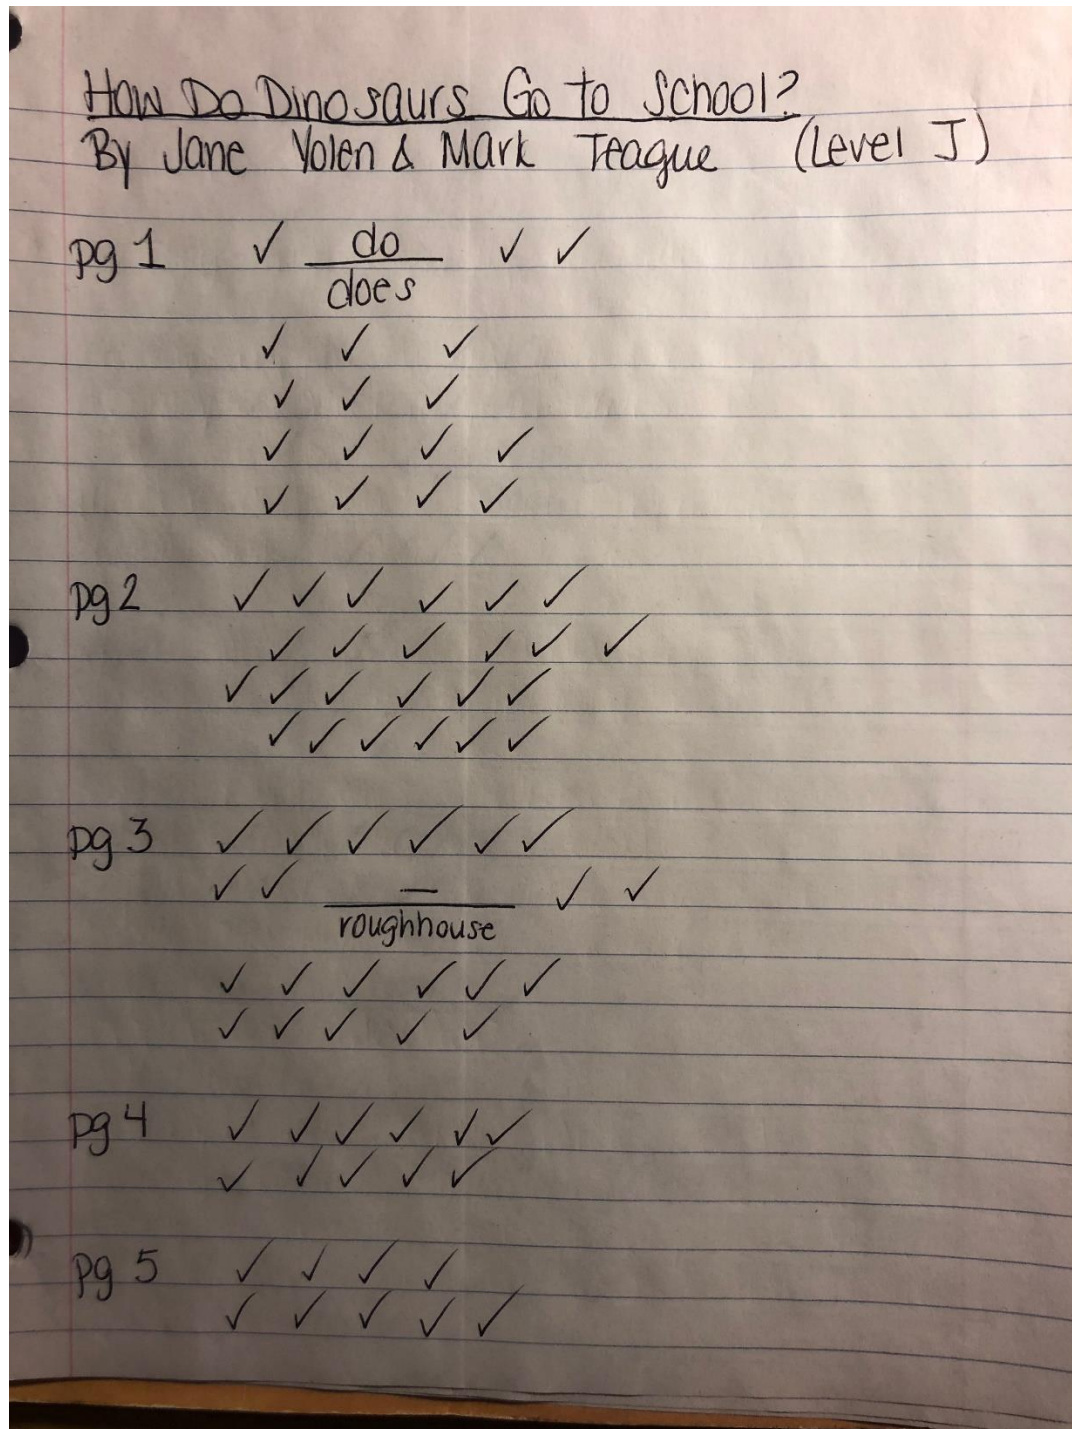 How Do Dinosaurs Go to School?
By Jane Yolen & Mark Teague (Level J)
pg 1 ✓ do ✓ ✓
does
✓ ✓ ✓
✓ ✓ ✓
✓ ✓ ✓ ✓
✓ ✓ ✓ ✓
pg 2 ✓ ✓ ✓ ✓ ✓ ✓
✓ ✓ ✓ ✓ ✓ ✓
✓ ✓ ✓ ✓ ✓ ✓
✓ ✓ ✓ ✓ ✓ ✓
pg 3 ✓ ✓ ✓ ✓ ✓ ✓
✓ ✓ — ✓ ✓
roughhouse
✓ ✓ ✓ ✓ ✓ ✓
✓ ✓ ✓ ✓ ✓
pg 4 ✓ ✓ ✓ ✓ ✓ ✓
✓ ✓ ✓ ✓ ✓
pg 5 ✓ ✓ ✓ ✓
✓ ✓ ✓ ✓ ✓